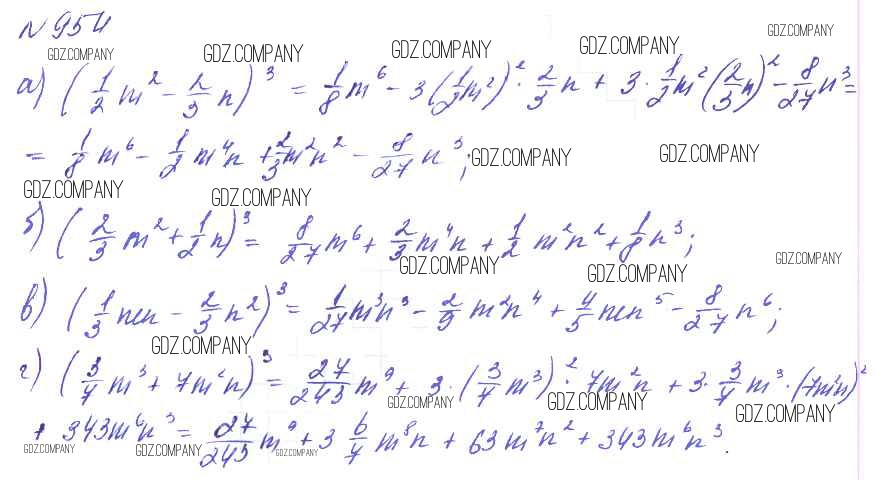 N 954
GDZ.COMPANY GDZ.COMPANY GDZ.COMPANY GDZ.COMPANY GDZ.COMPANY
а) (1/2 m² - 2/3 n)³ = 1/8 m⁶ - 3(1/2 m²)² · 2/3 n + 3 · 1/2 m² (2/3 n)² - 8/27 n³ =
= 1/8 m⁶ - 1/2 m⁴n + 2/3 m²n² - 8/27 n³; GDZ.COMPANY GDZ.COMPANY
GDZ.COMPANY GDZ.COMPANY
б) (2/3 m² + 1/2 n)³ = 8/27 m⁶ + 2/3 m⁴n + 1/2 m²n² + 1/8 n³;
GDZ.COMPANY GDZ.COMPANY GDZ.COMPANY
в) (1/3 mn - 2/3 n²)³ = 1/27 m³n³ - 2/9 m²n⁴ + 4/5 mn⁵ - 8/27 n⁶;
GDZ.COMPANY
г) (3/4 m³ + 7m²n)³ = 27/243 m⁹ + 3 · (3/4 m³)² · 7m²n + 3 · 3/4 m³ · (7m²n)²
GDZ.COMPANY GDZ.COMPANY GDZ.COMPANY
+ 343m⁶n³ = 27/243 m⁹ + 3 6/4 m⁸n + 63m⁷n² + 343m⁶n³.
GDZ.COMPANY GDZ.COMPANY GDZ.COMPANY